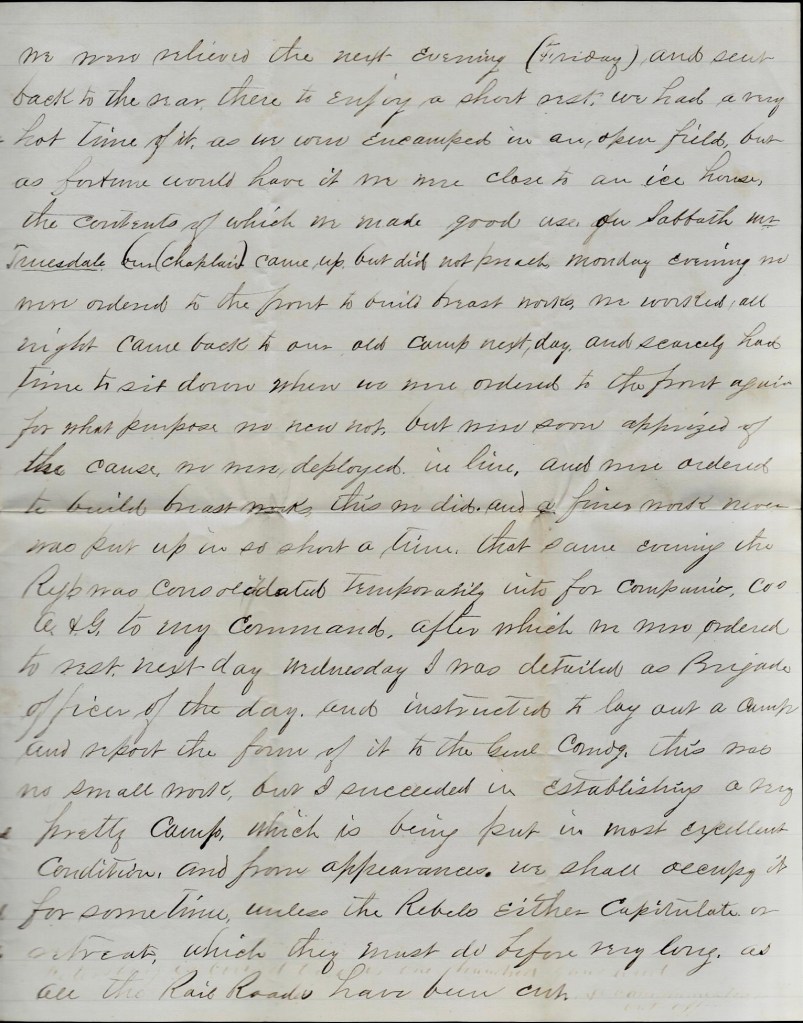 we were relieved the next evening (Friday) and sent
back to the rear, there to enjoy a short rest, we had a very
hot time of it. as we were encamped in an, open field, but
as fortune would have it we were close to an ice house,
the contents of which we made good use. on Sabbath Mr
Truesdale our (chaplain) came up. but did not preach, Monday evening we
were ordered to the front to build breast works, we worked, all
night came back to our old camp next, day. and scarcely had
time to sit down when we were ordered to the front again
for what purpose we new not, but were soon apprized of
the cause, we were, deployed. in line, and were ordered
to build breast works, this we did. and a finer work never
was put up in so short a time. that same evening the
was consolidated temporatily into for companies, cos
& G. to my command, after which we were ordered
to rest. next day Wednesday I was detailed as Brigade
officer of the day. and instructed to lay out a camp
and report the form of it to the Genl Comdg. this was
no small work, but I succeeded in establishing a very
pretty camp, which is being put in most excellent
condition. and from appearances. we shall occupy it
for some time, unless the Rebels either capitulate or
retreat, which they must do before very long. as
all the Rail Roads have been cut